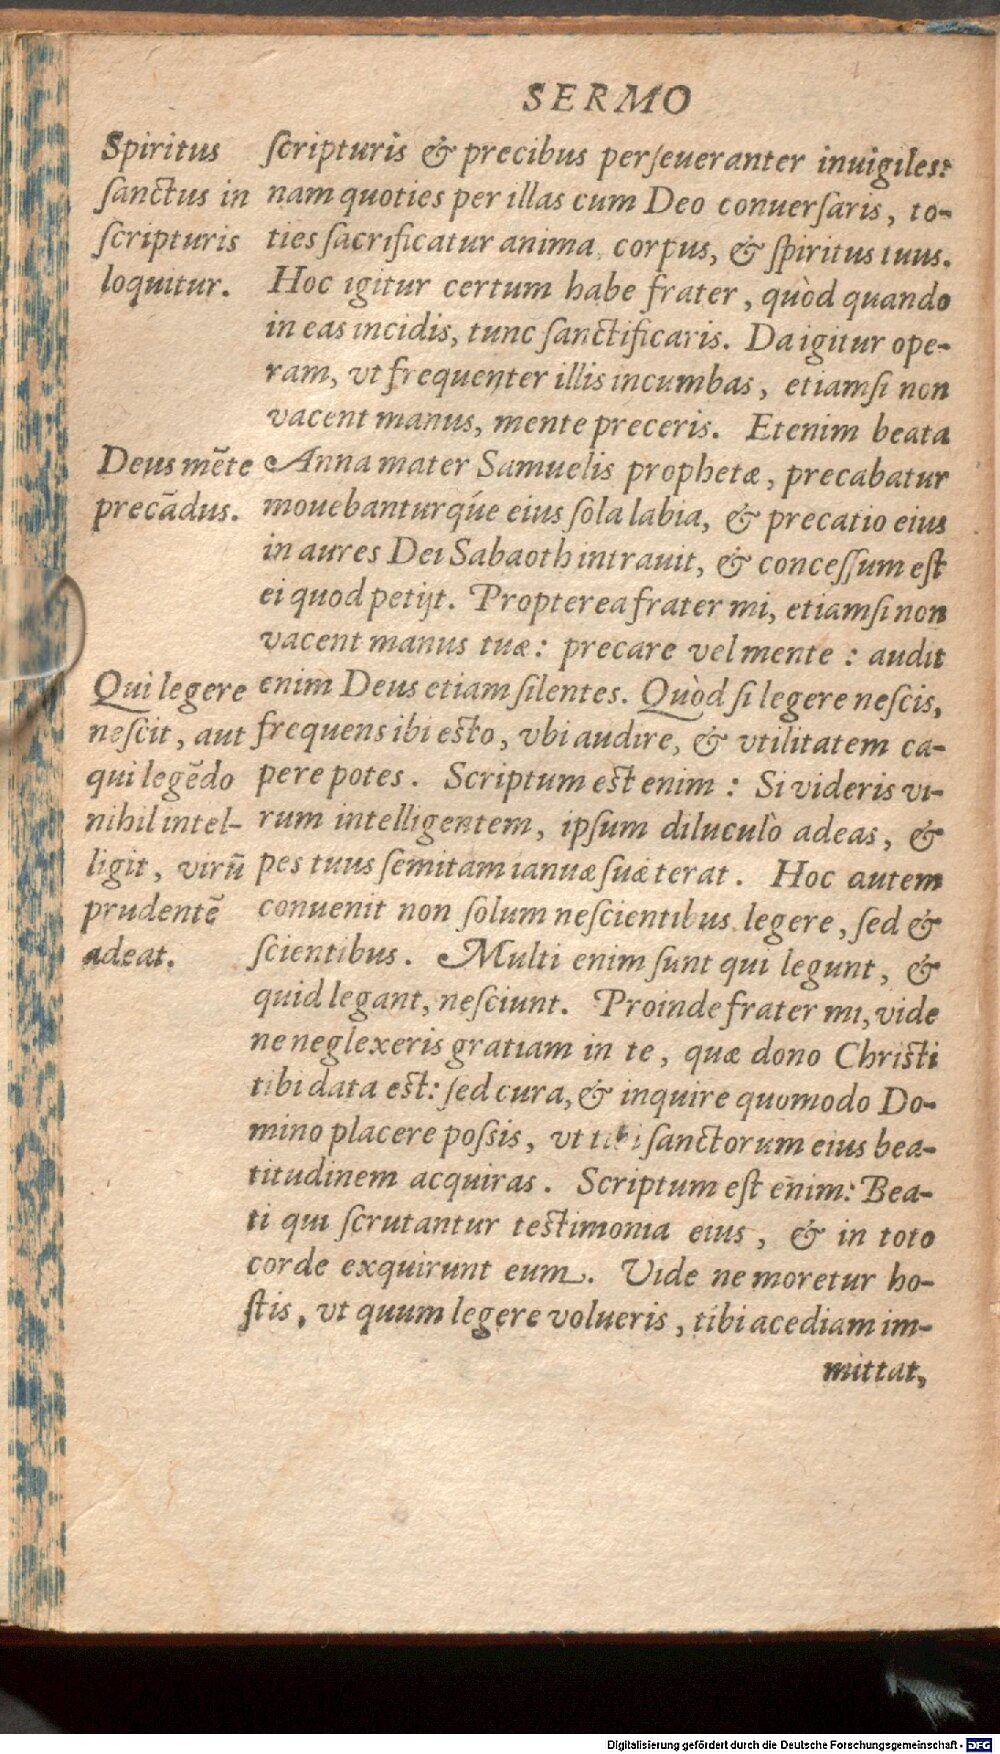 SERMO
Spiritus
sanctus in
scripturis
loquitur.
Deus mẽte
precãdus.
Qui legere
nescit, aut
qui legẽdo
nihil intel-
ligit, virũ
prudentẽ
adeat.
scripturis & precibus perseueranter inuigiles:
nam quoties per illas cum Deo conuersaris, to-
ties sacrificatur anima, corpus, & spiritus tuus.
Hoc igitur certum habe frater, quòd quando
in eas incidis, tunc sanctificaris. Da igitur ope-
ram, vt frequenter illis incumbas, etiamsi non
vacent manus, mente preceris. Etenim beata
Anna mater Samuelis prophetæ, precabatur
mouebanturq́ue eius sola labia, & precatio eius
in aures Dei Sabaoth intrauit, & concessum est
ei quod petijt. Propterea frater mi, etiamsi non
vacent manus tuæ: precare vel mente: audit
enim Deus etiam silentes. Quòd si legere nescis,
frequens ibi esto, vbi audire, & vtilitatem ca-
pere potes. Scriptum est enim: Si videris vi-
rum intelligentem, ipsum diluculò adeas, &
pes tuus semitam ianuæ suæ terat. Hoc autem
conuenit non solum nescientibus legere, sed &
scientibus. Multi enim sunt qui legunt, &
quid legant, nesciunt. Proinde frater mi, vide
ne neglexeris gratiam in te, quæ dono Christi
tibi data est: sed cura, & inquire quomodo Do-
mino placere possis, vt tibi sanctorum eius bea-
titudinem acquiras. Scriptum est enim: Bea-
ti qui scrutantur testimonia eius, & in toto
corde exquirunt eum. Vide ne moretur ho-
stis, vt quum legere volueris, tibi acediam im-
mittat,
Digitalisierung gefördert durch die Deutsche Forschungsgemeinschaft - DFG